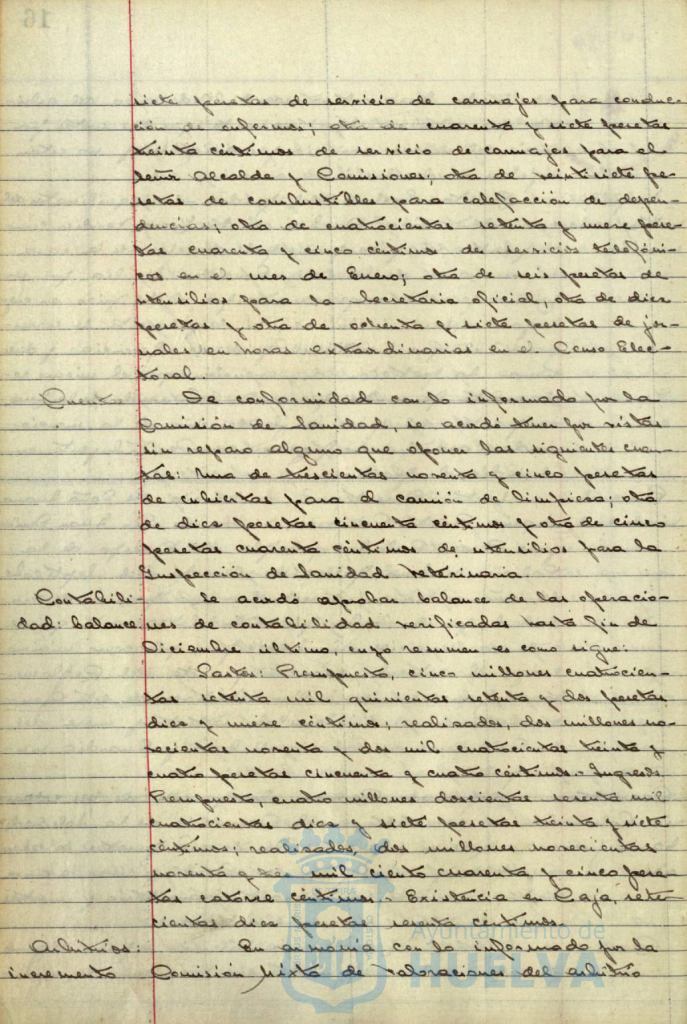 16
siete pesetas de servicio de carruajes para conduc-
ción de enfermos; otra de cuarenta y siete pesetas
treinta céntimos de servicio de carruajes para el
Señor Alcalde y Comisiones; otra de veintisiete pe-
setas de combustibles para calefacción de depen-
dencias; otra de cuatrocientas setenta y nueve pese-
tas cuarenta y cinco céntimos de servicios telefóni-
cos en el mes de Enero; otra de seis pesetas de
utensilios para la Secretaria oficial, otra de diez
pesetas y otra de ochenta y siete pesetas de jor-
nales en horas extraordinarias en el Censo Elec-
toral.
Cuentas De conformidad con lo informado por la
Comisión de Sanidad, se acordó tener por vistas
sin reparo alguno que oponer las siguientes cuen-
tas: Una de trescientas noventa y cinco pesetas
de cubiertas para el camión de limpieza; otra
de diez pesetas cincuenta céntimos y otra de cinco
pesetas cuarenta céntimos de utensilios para la
Inspección de Sanidad Veterinaria.
Contabili- Se acordó aprobar balance de las operacio-
dad: balance. nes de contabilidad verificadas hasta fin de
Diciembre último, cuyo resumen es como sigue:
Gastos: Presupuesto, cinco millones cuatrocien-
tas setenta mil quinientas setenta y dos pesetas
diez y nueve céntimos; realizados, dos millones no-
vecientas noventa y dos mil cuatrocientas treinta y
cuatro pesetas cincuenta y cuatro céntimos.- Ingresos.
Presupuesto, cuatro millones doscientas sesenta mil
cuatrocientas diez y siete pesetas treinta y siete
céntimos; realizados, dos millones novecientas
noventa y tres mil ciento cuarenta y cinco pese-
tas catorce céntimos.- Existencia en Caja, sete-
cientas diez pesetas sesenta céntimos.
Arbitrios: En armonía con lo informado por la
incremento Comisión Mixta de valoraciones del arbitrio
Ayuntamiento de
HUELVA